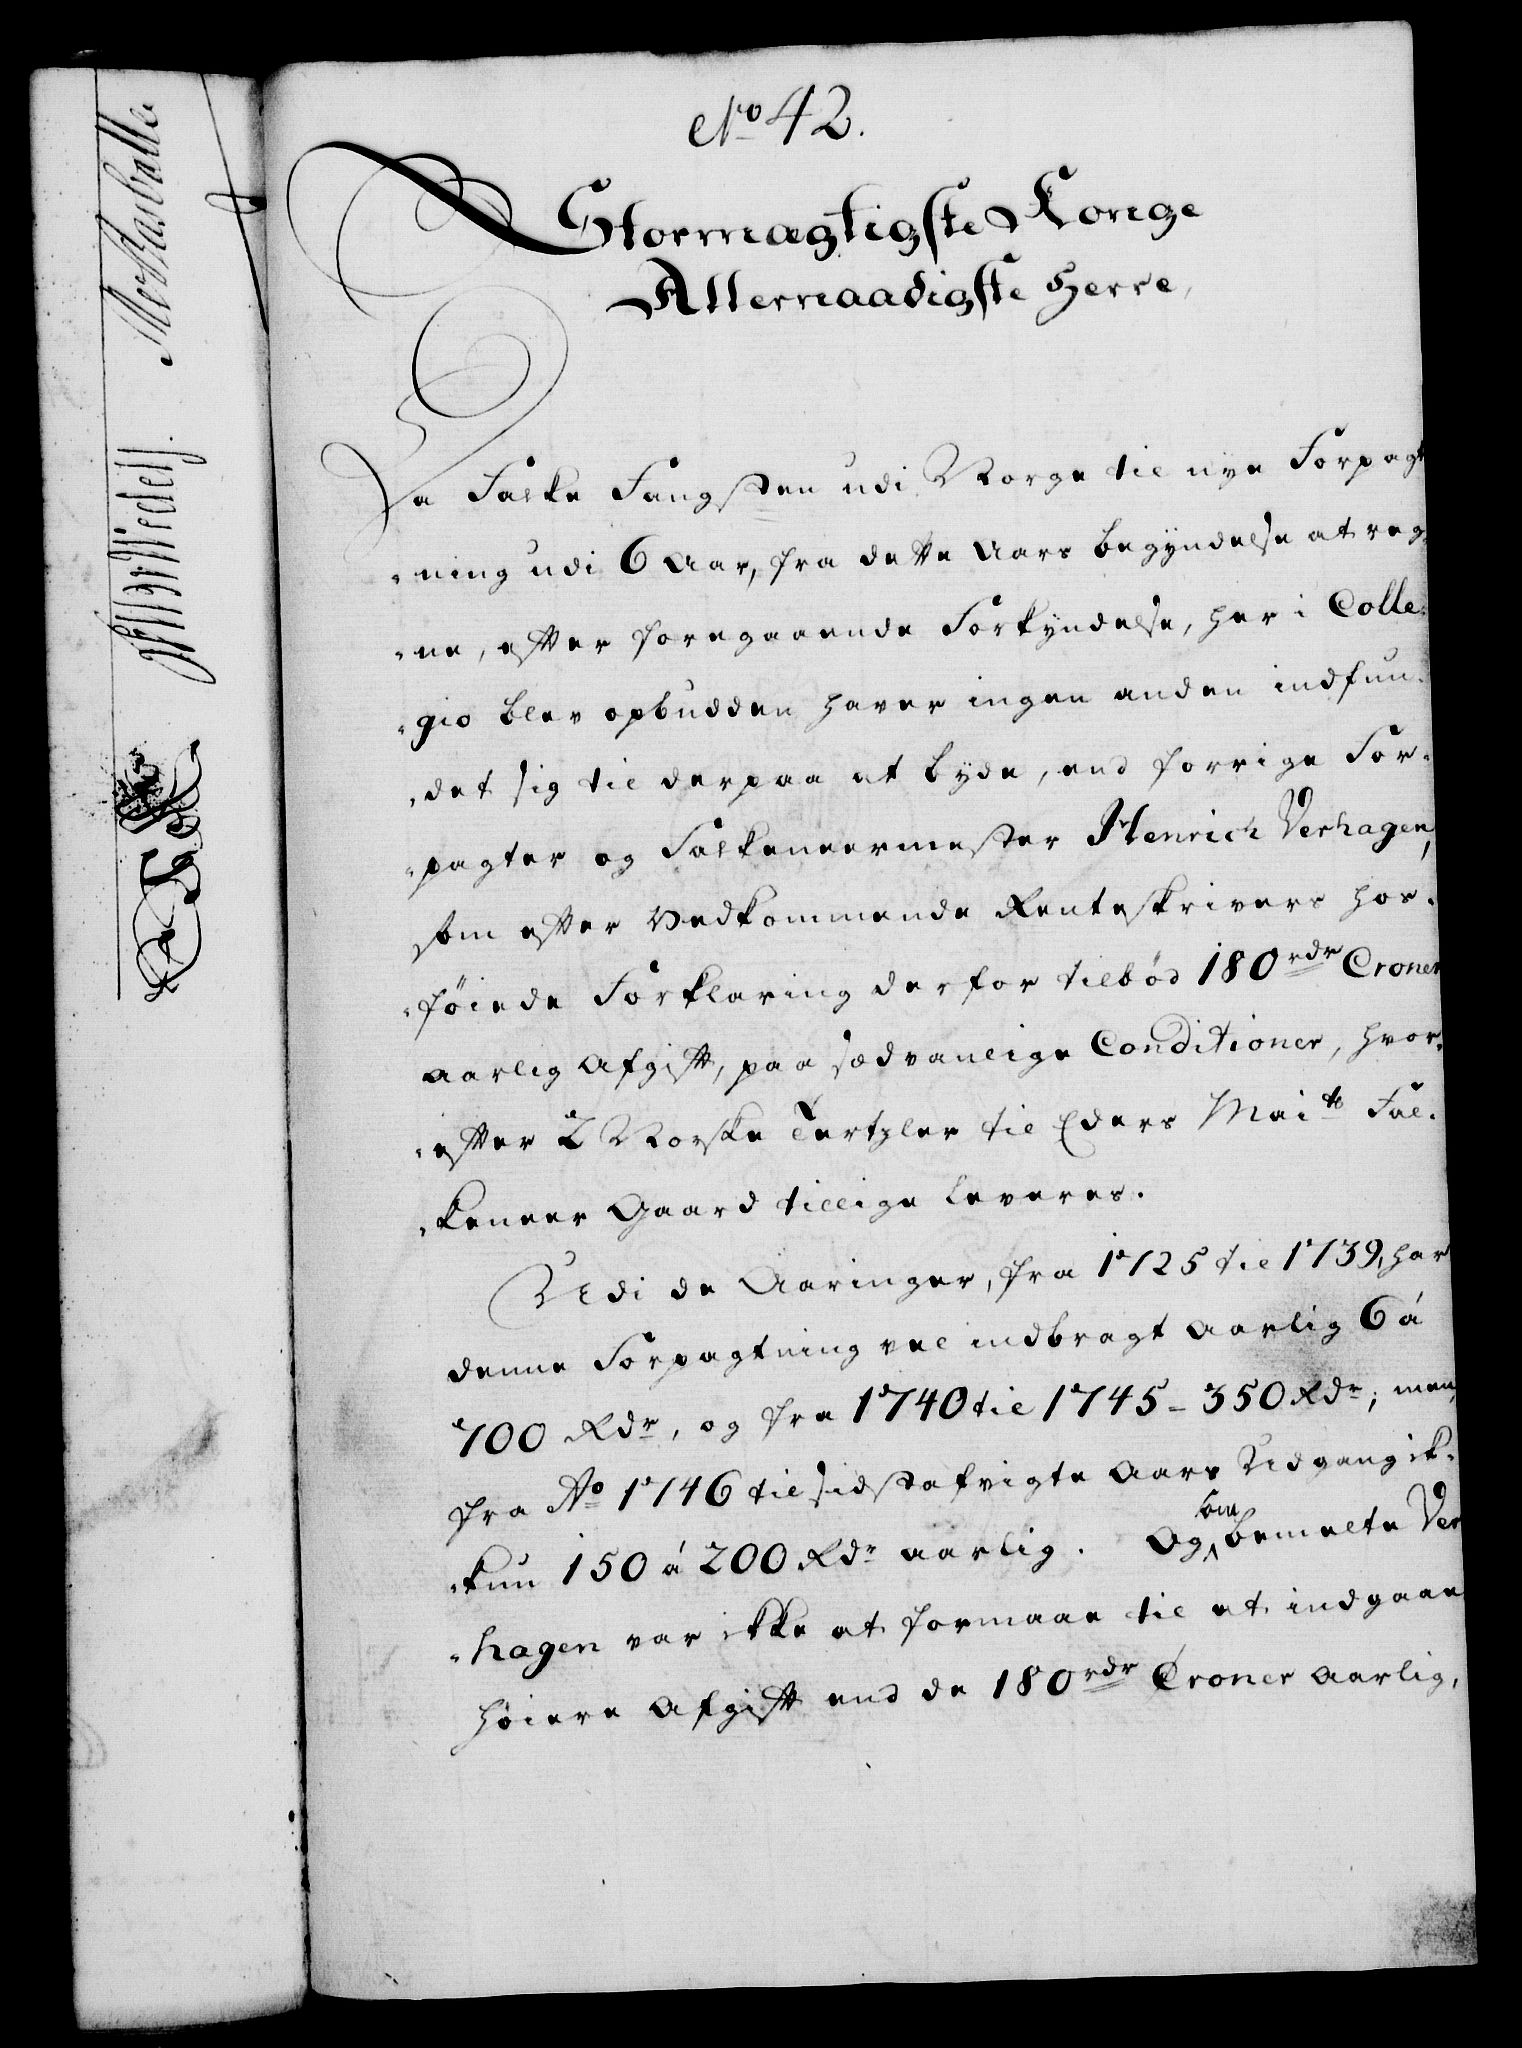 No 42.
Stormægtigste Konge
Allernaadigste Herre,
Da Falke Fangsten udi Norge til nye Forpagt
-ning udi 6 Aar, fra dette Aars begÿndelse at reg-
-ne, efter foregaaende Forkÿndelse, her i Colle-
-gio blev opbudden haver ingen anden indfun-
-det sig til derpaa at bÿde, end forrige For-
-pagter og Falkeneermester Henrich Verhagen,
som efter Vedkommende Renteskrivers hos-
-føiede Forklaring derfor tilbød 180 rdr Croner
aarlig Afgift, paa sædvanlige Conditioner, hvor-
-efter 2 Norske Tertzler til Eders Maits Fal-
-keneer Gaard tillige leveres.
Udi de Aaringer, fra 1725 til 1739, har
denne Forpagtning vel indbragt aarlig 6 á
700 Rdr, og fra 1740 til 1745 - 350 Rdr; men,
fra Ao 1746 til sidstafvigte Aars Udgang ik-
-kun 150 á 200 Rdr aarlig. Og som bemelte Ver
-hagen var ikke at formaae til at indgaae
høiere Afgift end de 180 rdr Croner aarlig,